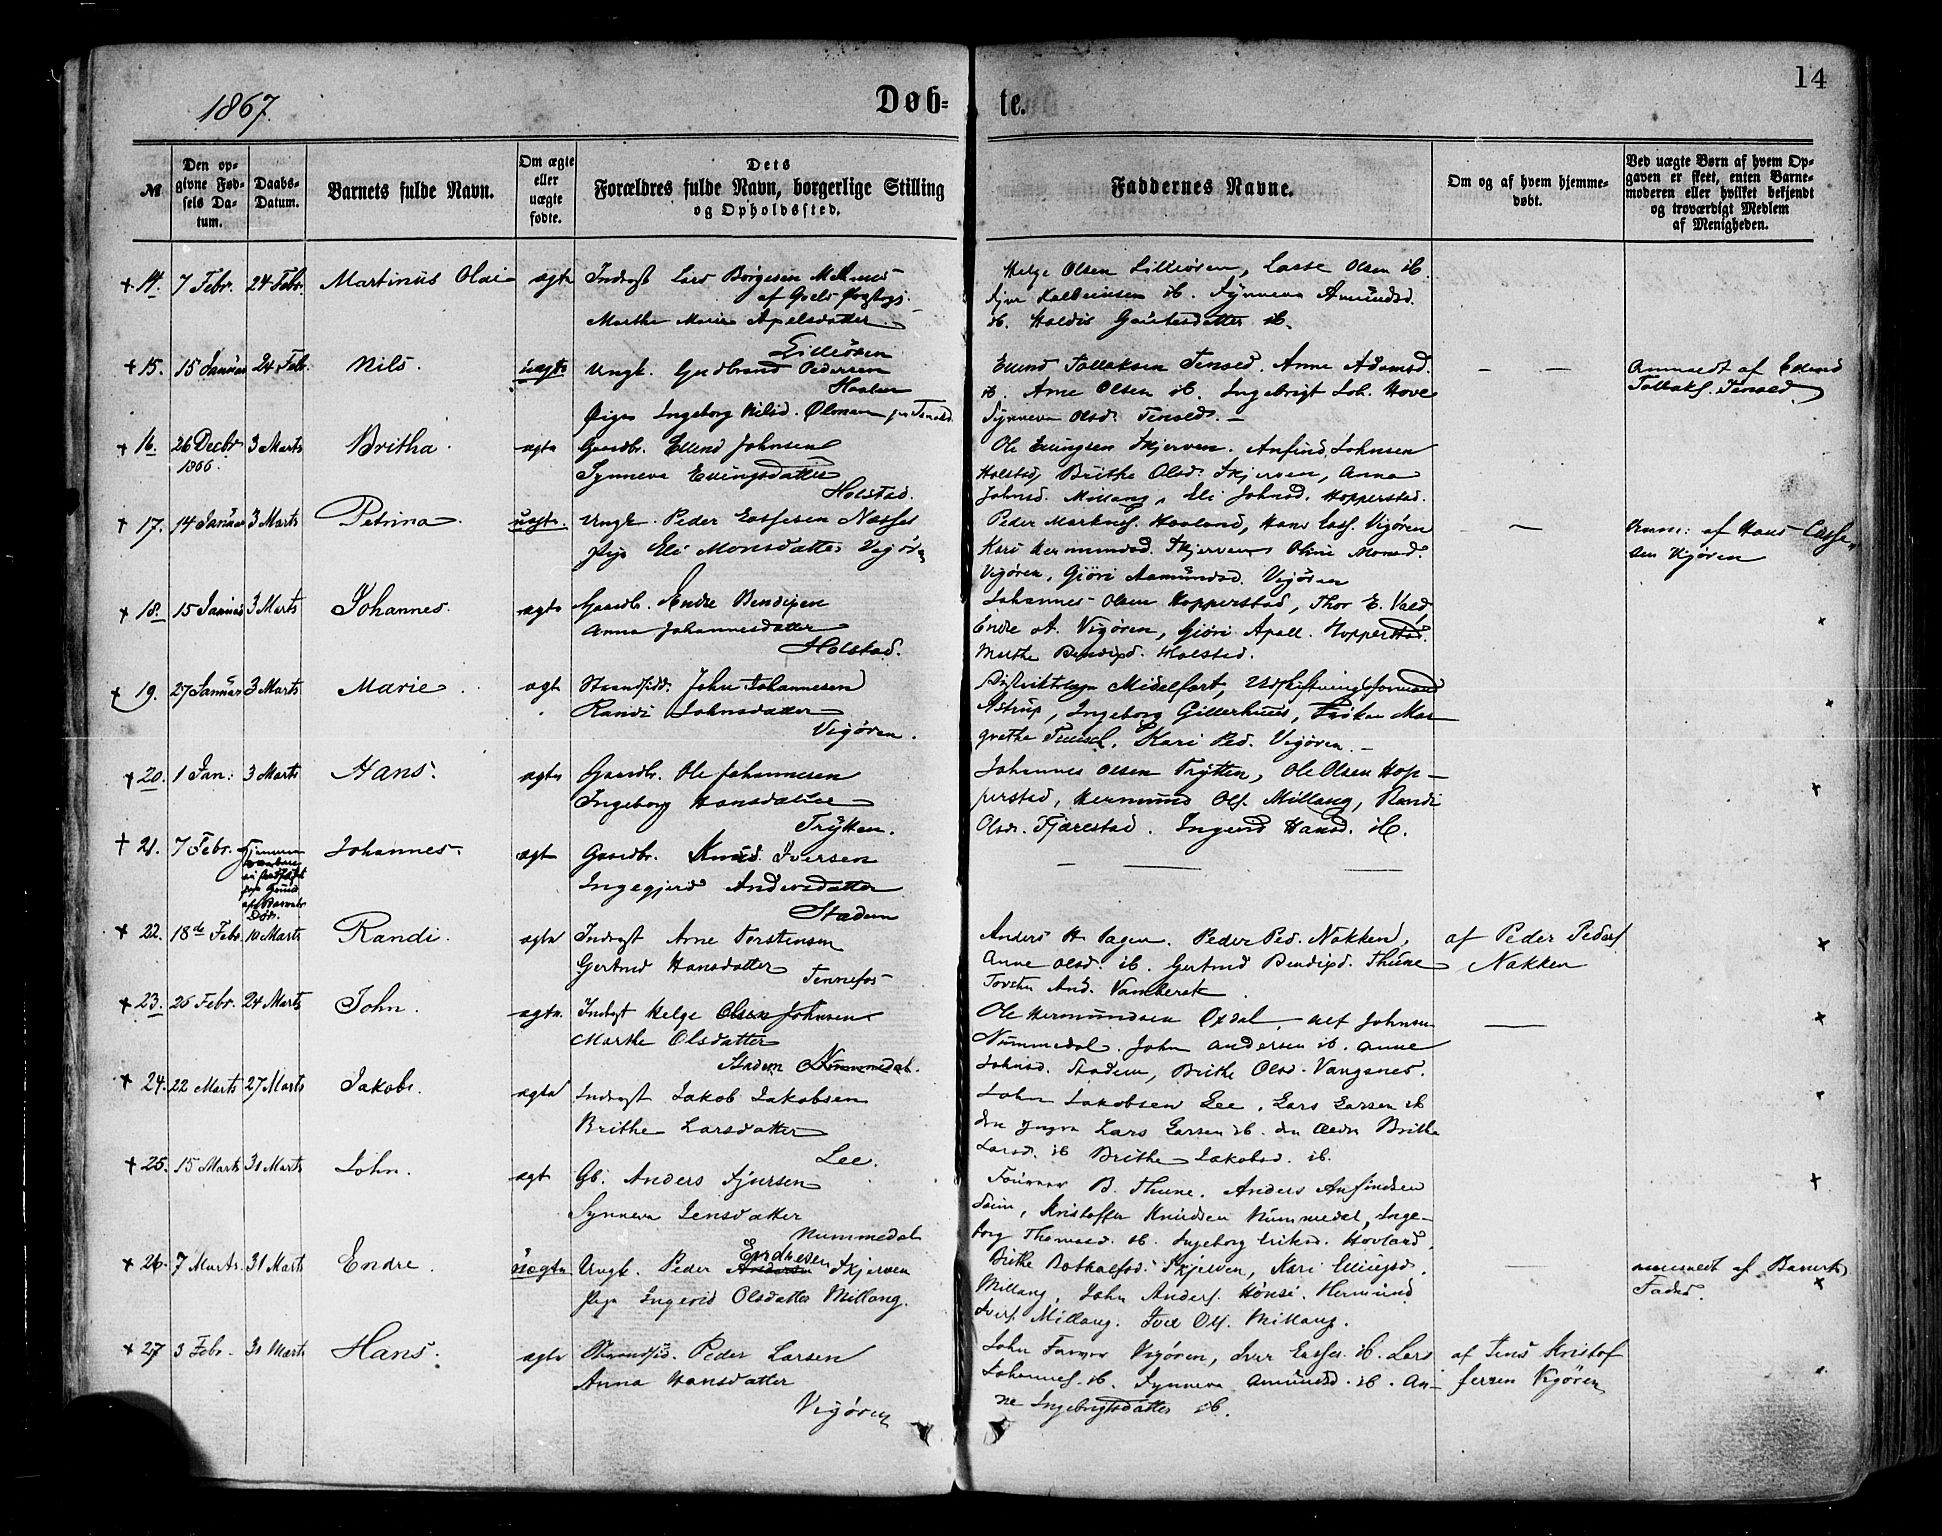 14
1867.
Døb-te.
№
Den opgivne Fødsels Datum.
Daabs-Datum.
Barnets fulde Navn.
Om ægte eller uægte fødte.
Dets Forældres fulde Navn, borgerlige Stilling og Opholdssted.
Faddernes Navne.
Om og af hvem hjemmedøbt.
Ved uægte Børn af hvem Opgaven er skeet, enten Barnemoderen eller hvilket bekjendt og troværdigt Medlem af Menigheden.
+ 14. 7 Febr. 24 Febr. Martinus Olai ægte Inderst Lars Børgesen
Marthe Marie Apelsdatter
Lilleøren
Helge Olsen Lilleøren, Lasse Olsen ib.
ib. Synneva Amundsd.
ib. Holdis Gautesdatter ib.
+ 15. 15 Januar 24 Feb. Nils. uægte Ungk. Gudbrand Pedersen
Pige Ingeborg Nilsd.
Ellend Tollaksen Tenold. Anne Adamsd.
ib. Arne Olsen ib. Ingebrigt Joh. Hove
Synneva Olsd. Tenold. –
Anmeldt af Ellend
Tollaks. Tenold.
+ 16. 26 Decbr 1866. 3 Marts Britha. ægte Gaardbr. Ellend Johnsen
Synneva Ellingsdatter
Holstad.
Ole Ellingsen Skjerven. Anfind Johnsen
Holstad, Brithe Olsd. Skjerven, Anna
Johnsd. Millang, Eli Johnsd. Hopperstad.
+ 17. 14 Januar 3 Marts Petrina. uægte. Ungk. Peder Lassesen
Pige Eli Monsdatter Vigøren
Peder Hovland, Hans Lass. Vigøren
Kari Hermundsd. Skjerven Oline Monsd.
Vigøren, Gjøri Aamundsd. Vigøren
Anm: af Hans Lasse-
sen Vigøren
+ 18. 15 Januar 3 Marts Johannes. ægte Gaardbr. Endre Bendixen
Anna Johannesdatter
Holstad.
Johannes Olsen Hopperstad, Thor E. Vold,
Endre A. Vigøren, Gjøri Apall. Hopperstad.
Marthe Bendixd. Holstad.
+ 19. 27 Januar 3 Marts Marie. ægte Strandsidd. John Johannesen
Randi Johnsdatter
Vigøren.
Distriktslæge Midelfart, Udskiftningsformand
Astrup, Ingeborg Frøken Mar-
grethe Kari Ped. Vigøren. –
+ 20. 1 Jan: 3 Marts Hans. ægte Gaardbr. Ole Johannesen
Ingeborg Hansdatter
Trytten.
Johannes Olsen Trytten, Ole Olsen Hop-
perstad, Hermund Ols. Millang, Randi
Olsdr. Fjærestad. Ingerd Hansd. ib.
+ 21. 7 Febr. Johannes. ægte Gaardbr. Knud Iversen
Ingegjerd Andersdatter
Stadem
+ 22. 18de Febr. 10 Marts Randi. ægte Inderst Arne Torstensen
Gertrud Hansdatter Tennefos
Anders H. Peder Ped. Nakken,
Anne Olsd. ib. Gertrud Bendixd. Thune
Torsten And.
af Peder Peders.
Nakken
+ 23. 25 Febr. 24 Marts John. ægte. Inderst Helge Olsen Johnsen
Marthe Olsdatter
Stadem Nummedal.
Ole Hermundsen Oxdal, Alf Johnsen
Nummedal. John Andersen ib. Anne
Johnsd. Stadem, Brithe Olsd. Vangsnes.
+ 24. 22 Marts 27 Marts Jakob. ægte Inderst Jakob Jakobsen
Brithe Larsdatter
Lee.
John Jakobsen Lee, Lars Larsen ib
den yngre Lars Larsen ib. den Ældre Brithe
Larsd. ib Brithe Jakobsd. ib.
+ 25. 15 Marts 31 Marts John. ægte Gb. Anders Sjursen
Synneva Jensdatter
Nummedal
B. Thune. Anders Anfindsen
Kristoffer Knudsen Nummedal, Inge-
borg Thomasd. ib. Ingeborg Eriksd. Hovland.
+ 26. 7 Marts. 31 Marts Endre. uægte Ungk. Peder Andersen Endresen Skjerven
Pige Ingerid Olsdatter Millang.
Brithe Botholfsd. Skjerven, Kari Ellingsd.
Millang, John Anders. Hønsi. Hermund
Ivers. Millang. Iver Ols. Millang.
anmeldt af Barnets
Fader.
+ 27 3 Febr. 31 Marts Hans. ægte Strandsid. Peder Larsen
Anna Hansdatter
Vigøren
John Vigøren, Iver Lasses. ib. Lars
Johannes. ib. Synneva Amundsd. ib. An-
ne Ingebrigtsdatter ib.
af Jens Kristof
fersen Vigøren